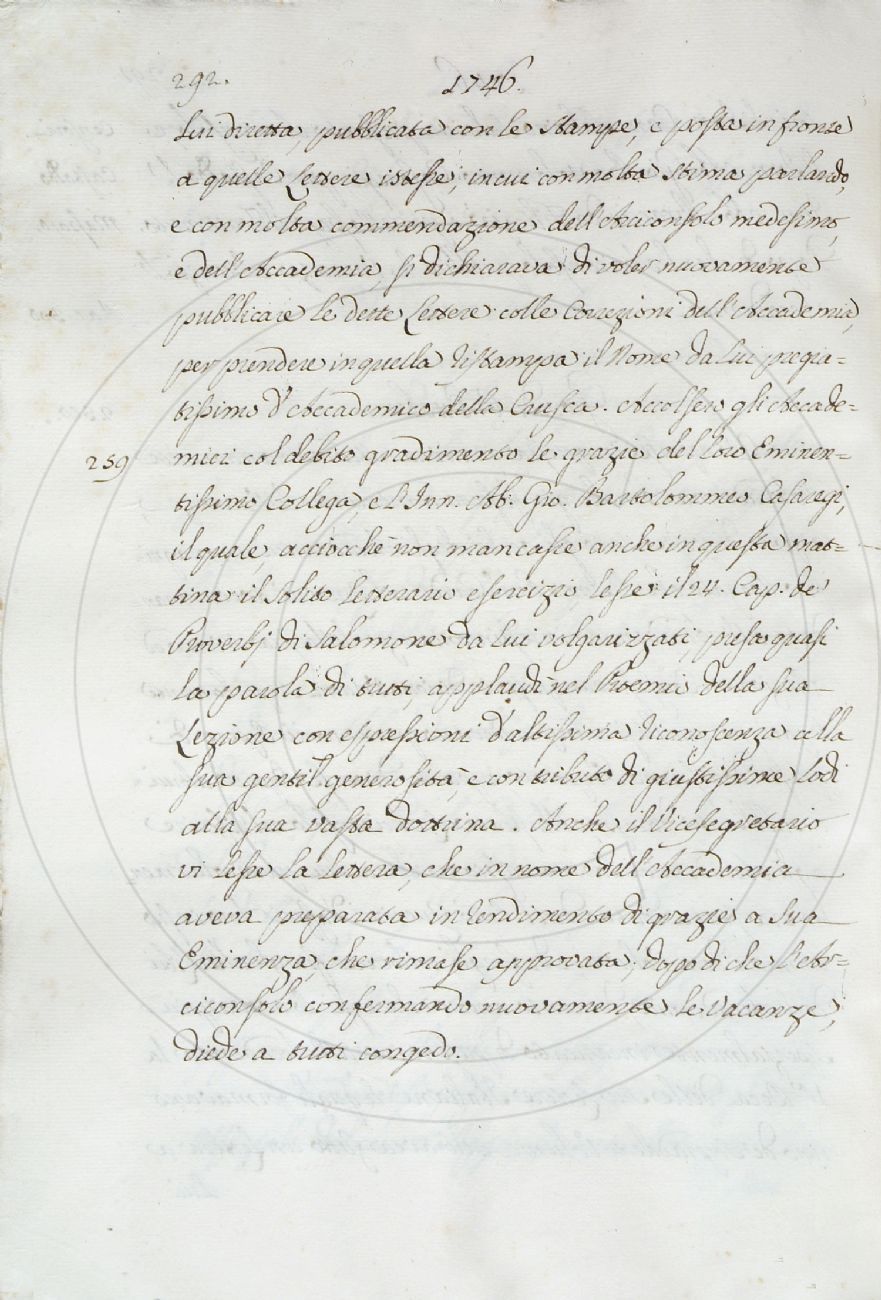 292. 1746.
Lui diretta, pubblicata con le Stampe, e posta in fronte
a quelle Lettere istesse, in cui con molta stima parlando,
e con molta commendazione dell'Arciconsolo medesimo,
e dell'Accademia, si dichiarava di voler nuovamente
pubblicare le dette Lettere colle Correzioni dell'Accademia,
per prendere in quella ristampa il Nome da Lui pregia=
tissimo d'Accademico della Crusca. Accolsero gli Accade=
259 mici col debito gradimento le grazie del loro Eminen=
tissimo Collega, e l'Inn. Ab. Gio. Bartolommeo Casaregi,
il quale, acciocchè non mancasse anche in questa mat=
tina il solito Letterario esercizio, lesse il 24. Cap. de
Proverbj di Salomone da Lui volgarizzati, presa quasi
la parola di tutti, applaudì nel Proemio della sua
Lezione con espressioni d'altissima riconoscenza alla
sua gentil generosità, e con tributo di giustissime lodi
alla sua vasta dottrina. Anche il Vicesegretario
vi lesse la Lettera, che in nome dell'Accademia
aveva preparata in rendimento di grazie a Sua
Eminenza, che rimase approvata; dopo di che l'Ar=
ciconsolo confermando nuovamente le Vacanze,
diede a tutti congedo.